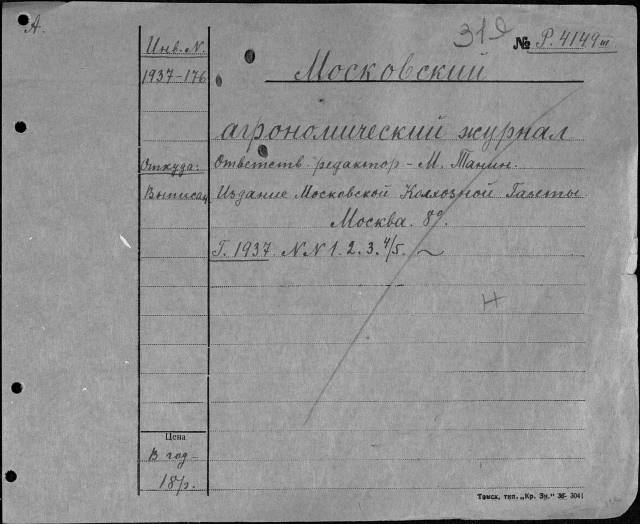 А.
31д
№ Р.4149 III
Инв. N.
1937-176
Московский
агрономический журнал
Откуда:
Ответств. редактор - М. Танин.
Выписан
Издание Московской Колхозной Газеты
Москва. 8°.
Г. 1937 NN 1. 2. 3. 4/5. ~
Н
Цена
В год -
18 р.
Томск, тип. „Кр. Зн.“ 36- 3041